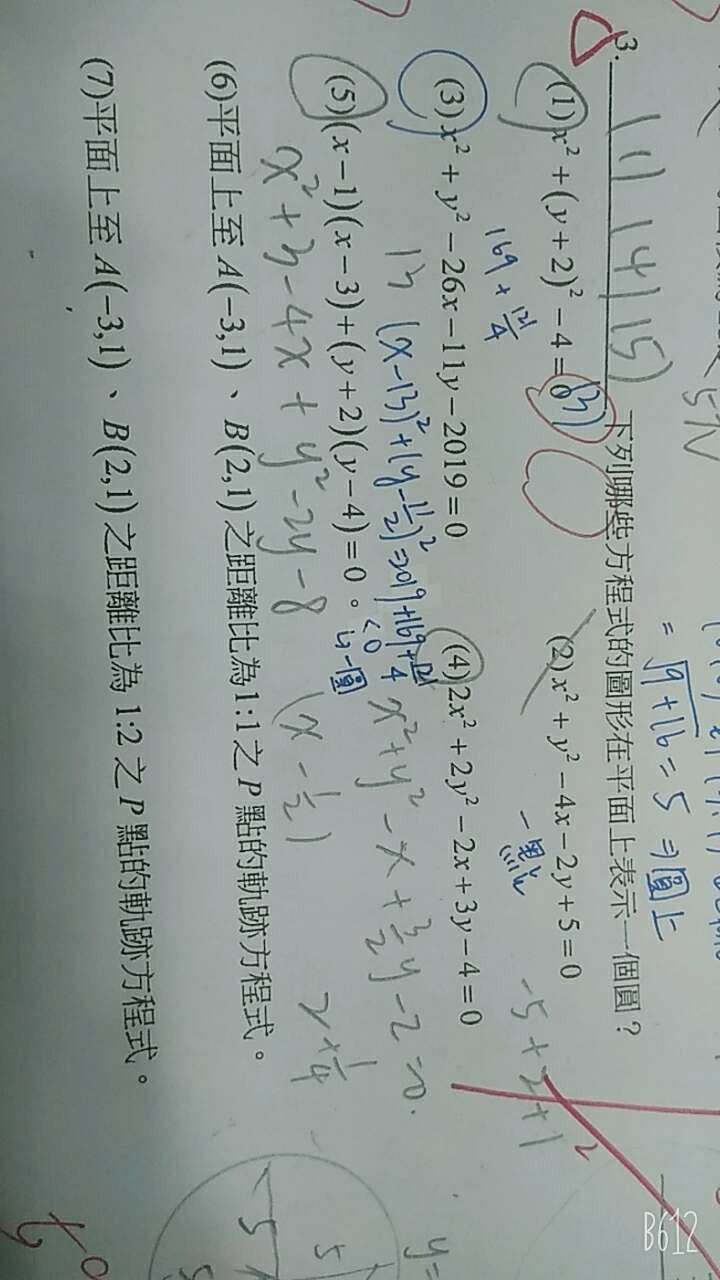 3. (1) (4) (5) 下列哪些方程式的圖形在平面上表示一個圓？
(3)
(1) x² + (y + 2)² − 4 = 0
(2) x² + y² − 4x − 2y + 5 = 0
一點
-5 + 2² + 1²
169 + 121/4
(3) x² + y² − 26x − 11y − 2019 = 0
(4) 2x² + 2y² − 2x + 3y − 4 = 0
13 (x-13)² + (y-11/2)² = 2019 + 169 + 121/4
x² + y² - x + 3/2 y - 2 = 0
(5) (x − 1)(x − 3) + (y + 2)(y − 4) = 0。
x² + 3 - 4x + y² - 2y - 8
(x - 1/2)
2 + 1/4
(6) 平面上至 A(−3,1)、B(2,1) 之距離比為 1:1 之 P 點的軌跡方程式。
(7) 平面上至 A(−3,1)、B(2,1) 之距離比為 1:2 之 P 點的軌跡方程式。
= √9+16 = 5 ⇒ 圓上
y=
-5
5
B612